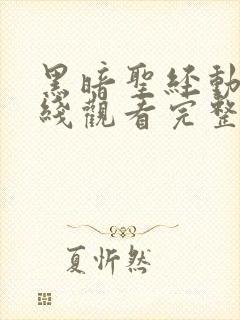 黑暗聖經動
綫觀看完整
夏忻然